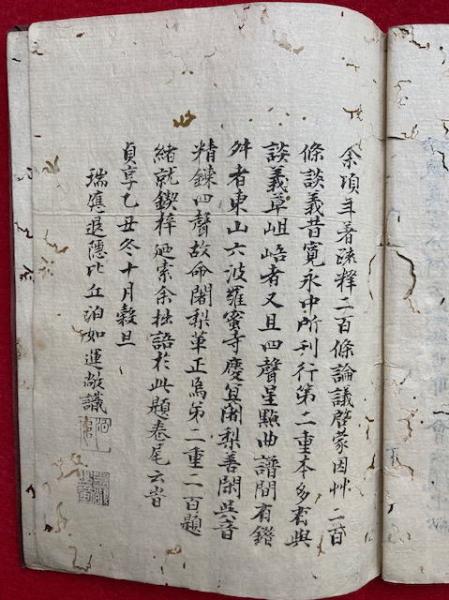 余頃年著疏釋二百條論議啓蒙因艸二百
條談義昔寛永中所刊行第二重本多與
談義草岨峿者又且四聲星點曲譜間有錯
舛者東山六波羅蜜寺慶算闍梨善閑吳音
精錬四聲故命闍梨革正焉第二重二百題
緒就鍥梓廼索余拙語於此題卷尾云旹
貞享乙丑冬十月穀旦
瑞應退隱比丘泊如運敞識